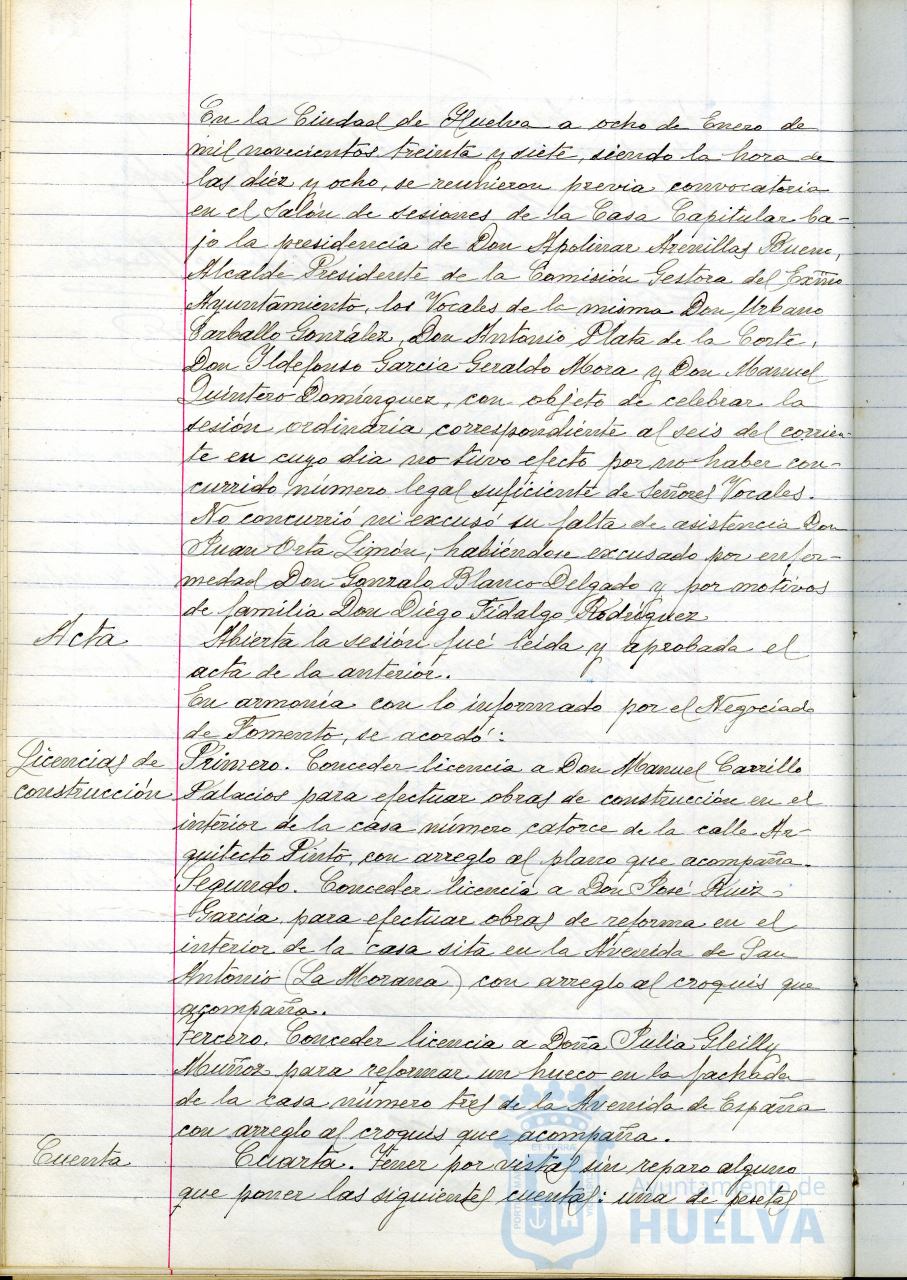 En la Ciudad de Huelva a ocho de Enero de
mil novecientos treinta y siete, siendo la hora de
las diez y ocho, se reunieron previa convocatoria
en el Salón de sesiones de la Casa Capitular ba-
jo la presidencia de Don Apolinar Arenillas Bueno,
Alcalde Presidente de la Comisión Gestora del Excmo
Ayuntamiento, los Vocales de la misma Don Urbano
Carballo González, Don Antonio Plata de la Corte,
Don Ildefonso García Geraldo Mora y Don Manuel
Quintero Domínguez, con objeto de celebrar la
sesión ordinaria correspondiente al seis del corrien-
te en cuyo dia no tuvo efecto por no haber con-
currido número legal suficiente de Señores Vocales.
No concurrió ni excusó su falta de asistencia Don
Juan Orta Limón, habiéndose excusado por enfer-
medad Don Gonzalo Blanco Delgado y por motivos
de familia Don Diego Fidalgo Rodríguez
Acta
Abierta la sesión fué leída y aprobada el
acta de la anterior.
En armonía con lo informado por el Negociado
de Fomento, se acordó:
Licencias de
construcción
Primero. Conceder licencia a Don Manuel Carrillo
Palacios para efectuar obras de construcción en el
interior de la casa número catorce de la calle Ar-
quitecto Pinto, con arreglo al plano que acompaña.
Segundo. Conceder licencia a Don José Ruiz
García para efectuar obras de reforma en el
interior de la casa sita en la Avenida de San
Antonio (La Morana) con arreglo al croquis que
acompaña.
Tercero. Conceder licencia a Doña Julia Gleilly
Muñoz para reformar un hueco en la fachada
de la casa número tres de la Avenida de España
con arreglo al croquis que acompaña.
Cuenta
Cuarta. Tener por vistas sin reparo alguno
que poner las siguientes cuentas: una de pesetas
Ayuntamiento de
HUELVA